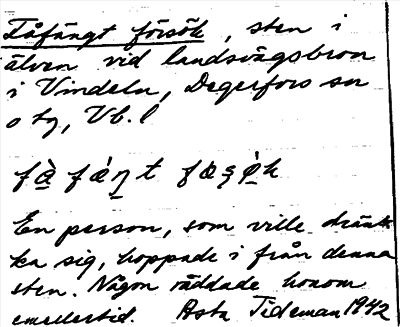 Fåfängt försök, sten i
älven vid landsvägsbron
i Vindeln, Degerfors sn
o tg, Vb. l
fà fáŋt fœʂǿk
En person, som ville dränk-
ka sig, hoppade i från denna
sten. Någon räddade honom
emellertid. Asta Tideman 1942